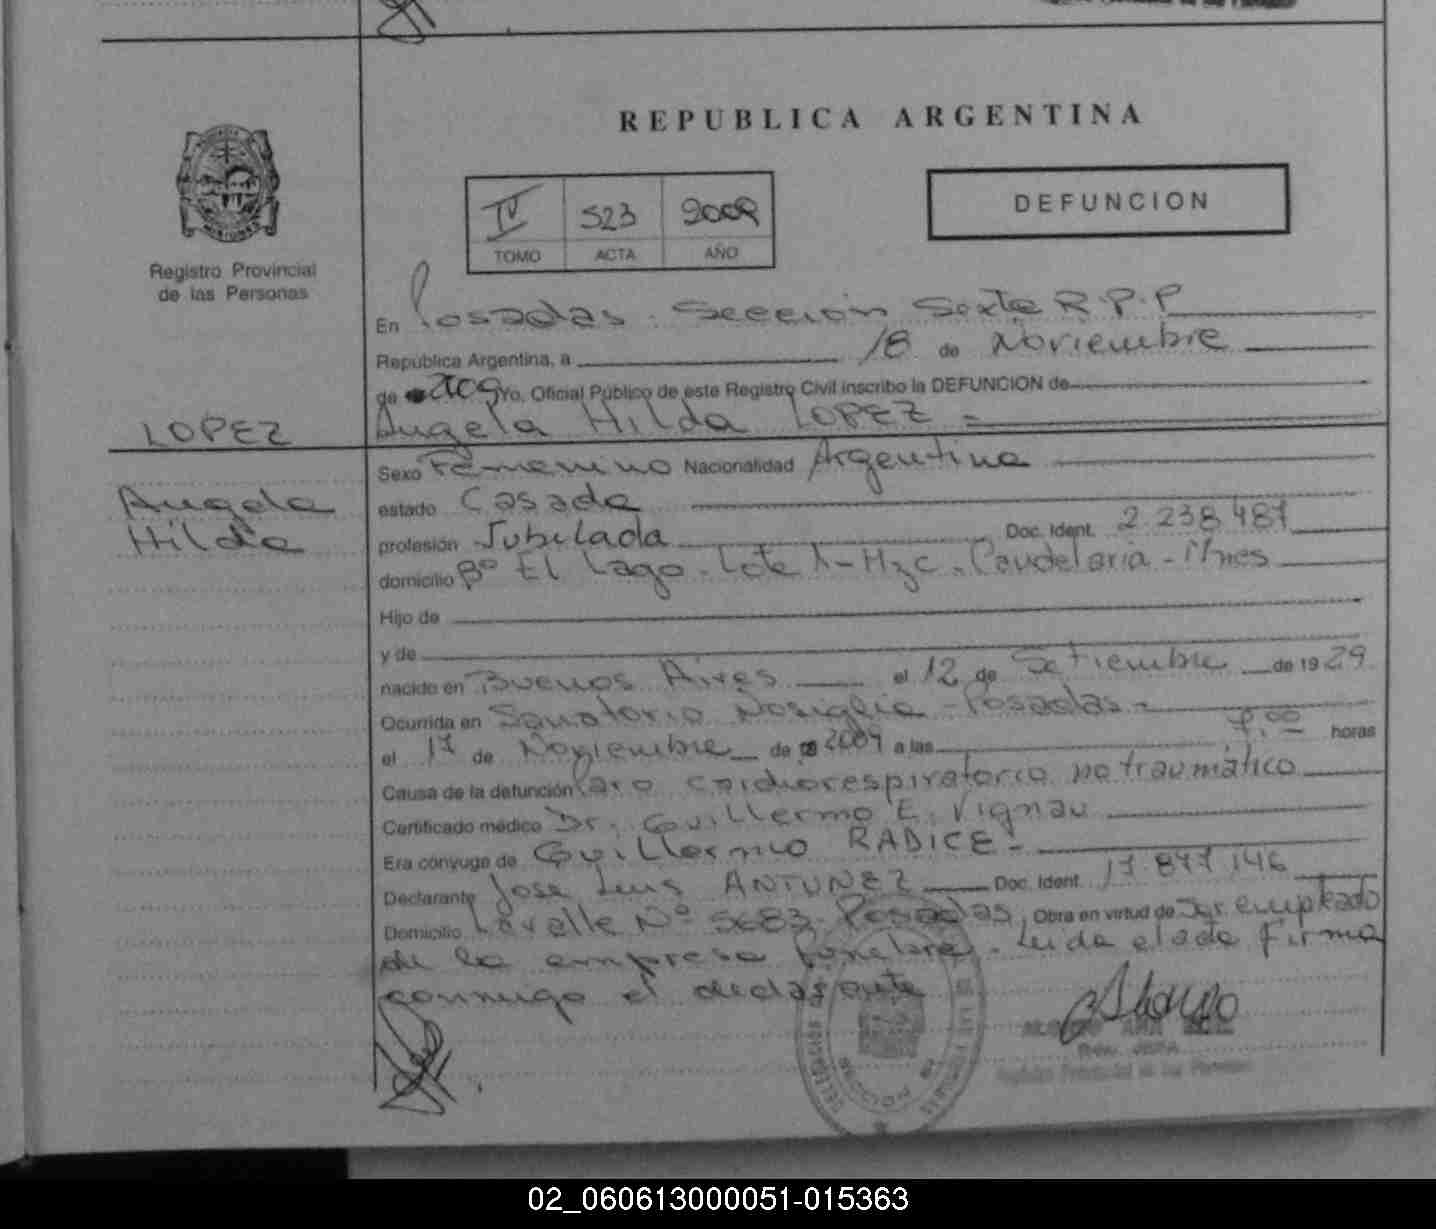 REPUBLICA ARGENTINA
DEFUNCION
IV 523 2009
TOMO ACTA AÑO
MISIONES
Registro Provincial
de las Personas
En Posadas. Sección Sexta R.P.P
República Argentina, a 18 de Noviembre
de 2009 Yo, Oficial Público de este Registro Civil inscribo la DEFUNCION de
LOPEZ
Angela Hilda LOPEZ =
Angela
Hilda
Sexo Femenino Nacionalidad Argentina
estado Casada
profesión Jubilada Doc. Ident. 2.238.487
domicilio Bº El Lago. Lote 1-Mzc. Candelaria - Mnes
Hijo de
y de
nacido en Buenos Aires el 12 de Setiembre de 1929
Ocurrida en Sanatorio Nosiglia - Posadas -
el 17 de Noviembre de 2009 a las horas
Causa de la defunción Paro cardiorespiratorio no traumático
Certificado médico Dr. Guillermo E. Vignau
Era cónyuge de Guillermo RADICE -
Declarante Jose Luis ANTUNEZ Doc. Ident. 17.877.146
Domicilio Lavalle Nº 5683. Posadas, Obra en virtud de Ser empleado
de la empresa funebre. Leida el acta firma
conmigo el declarante
Registro Provincial de las Personas
02_060613000051-015363